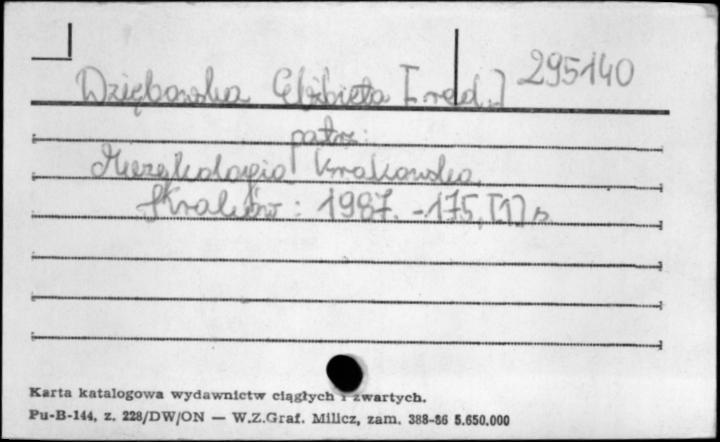 295140
Dziębowska Elżbieta [red.]
patrz:
Muzykologia krakowska.
Kraków: 1987. - 175, [1] s.
Karta katalogowa wydawnictw ciągłych i zwartych.
Pu-B-144, z. 228/DW/ON — W.Z.Graf. Milicz, zam. 388-86 5.650.000